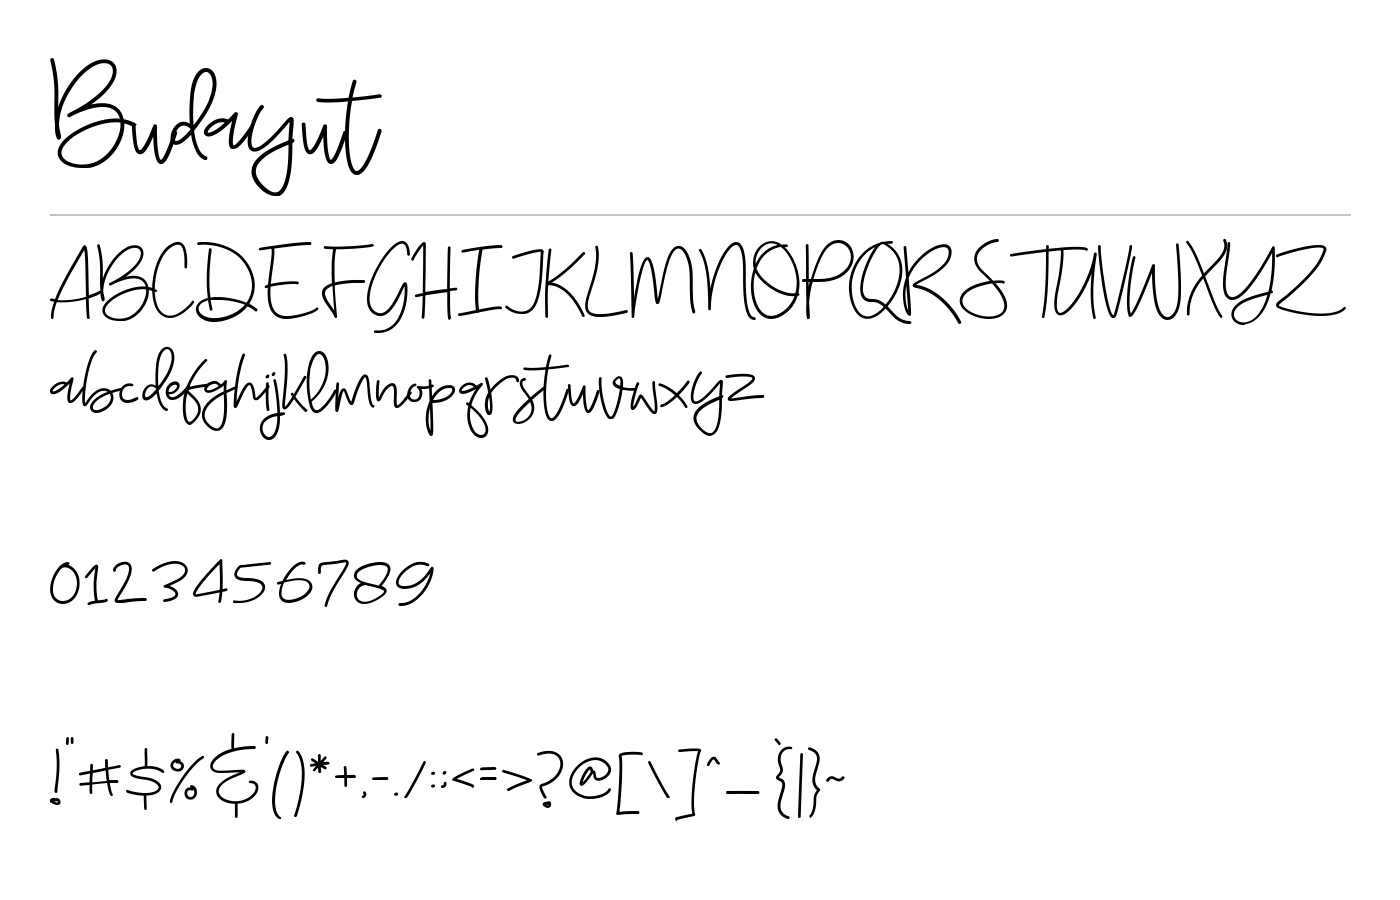 Budayut
ABCDEFGHIJKLMNOPQRSTUVWXYZ
abcdefghijklmnopqrstuvwxyz
0123456789
!"#$%&'()*+,-./:;<=>?@[\]^_`{|}~